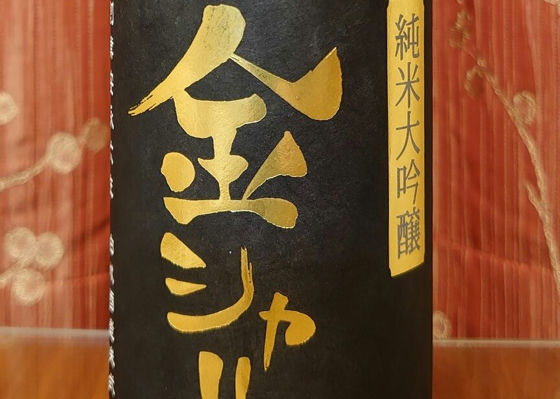 純米大吟醸
金シャリ